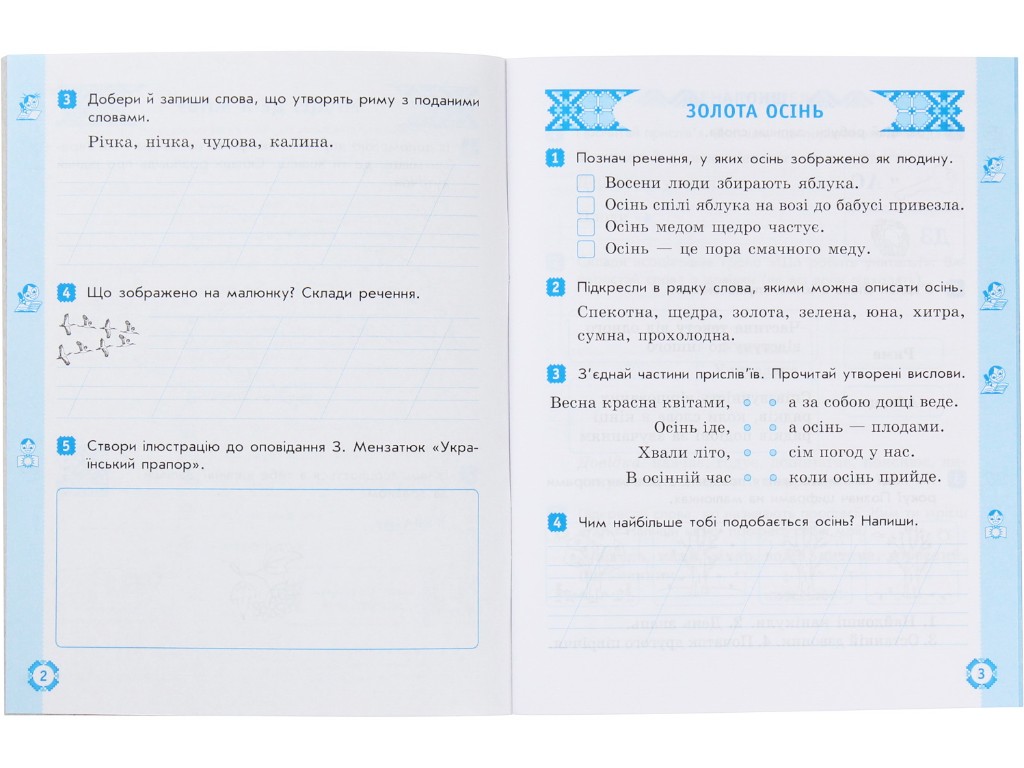 3 Добери й запиши слова, що утворять риму з поданими
словами.
Річка, нічка, чудова, калина.
4 Що зображено на малюнку? Склади речення.
5 Створи ілюстрацію до оповідання З. Мензатюк «Укра-
їнський прапор».
2
ЗОЛОТА ОСІНЬ
1 Познач речення, у яких осінь зображено як людину.
Восени люди збирають яблука.
Осінь спілі яблука на возі до бабусі привезла.
Осінь медом щедро частує.
Осінь — це пора смачного меду.
2 Підкресли в рядку слова, якими можна описати осінь.
Спекотна, щедра, золота, зелена, юна, хитра,
сумна, прохолодна.
3 З'єднай частини прислів'їв. Прочитай утворені вислови.
Весна красна квітами, а за собою дощі веде.
Осінь іде, а осінь — плодами.
Хвали літо, сім погод у нас.
В осінній час коли осінь прийде.
4 Чим найбільше тобі подобається осінь? Напиши.
3